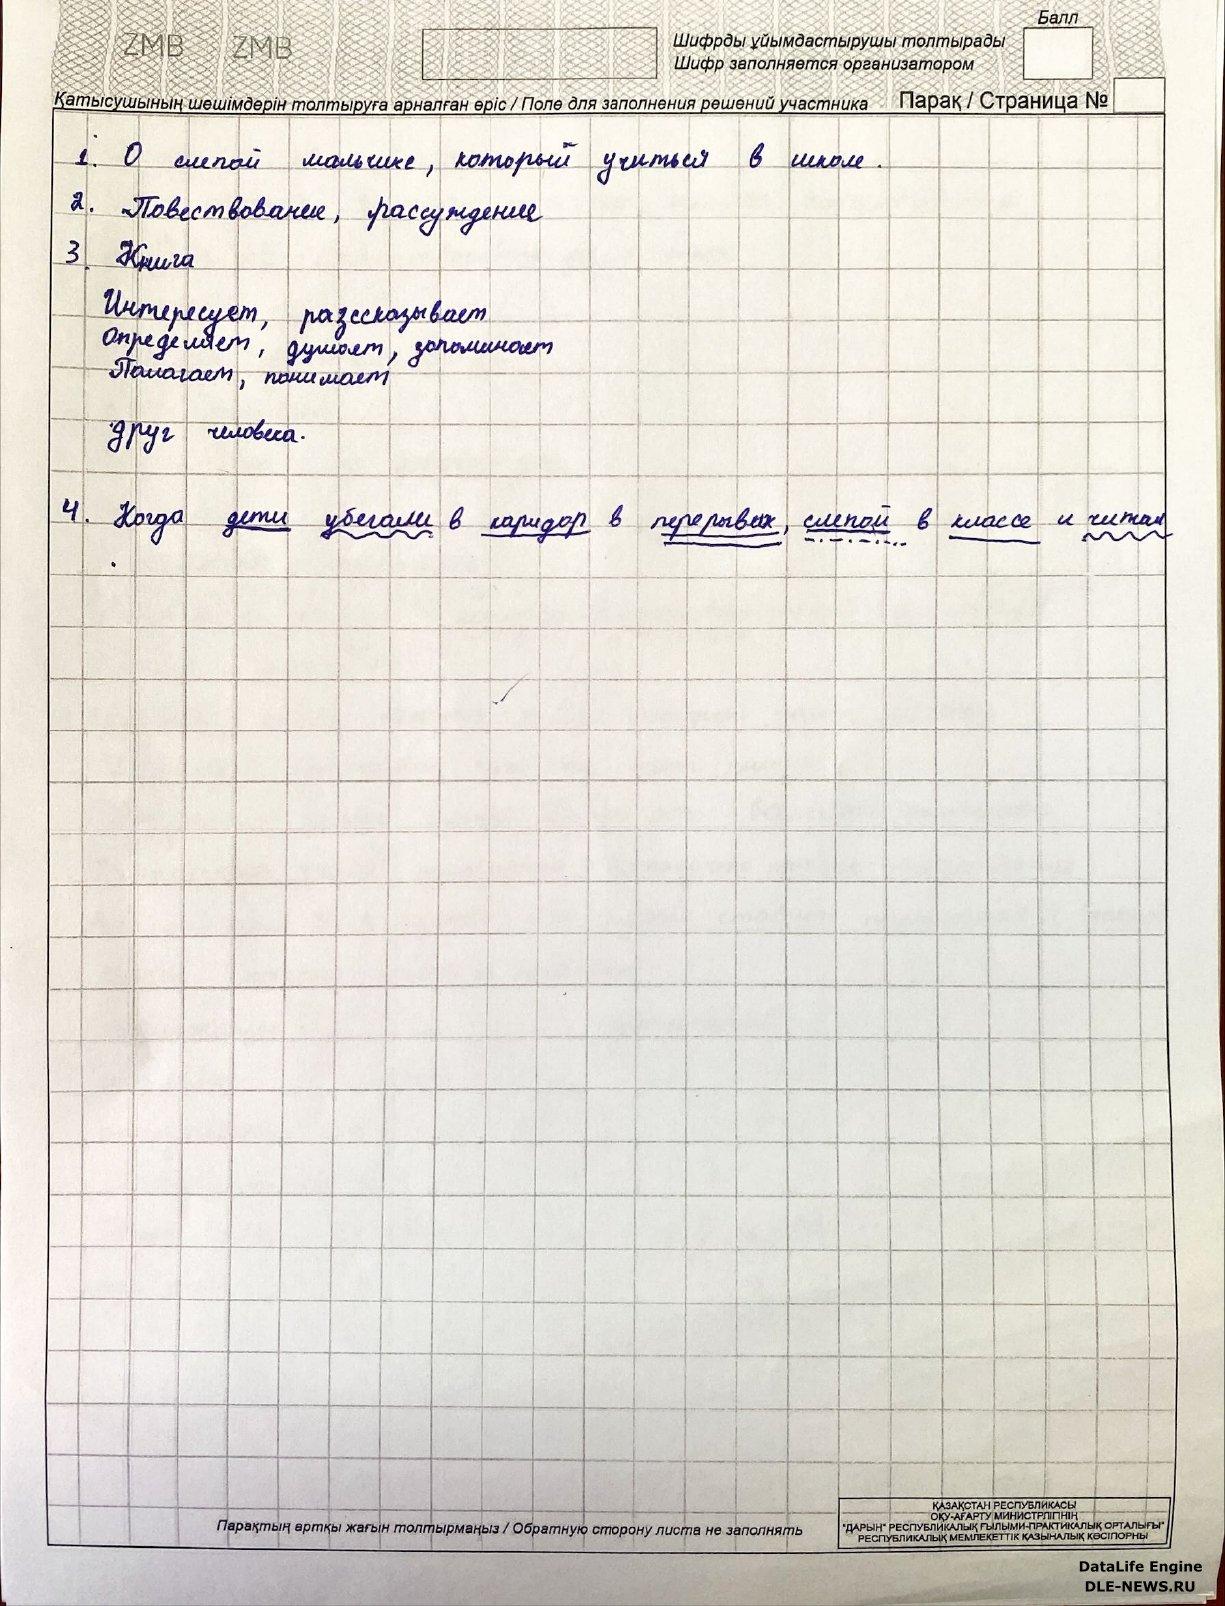 Балл
ZMB ZMB
Шифрды ұйымдастырушы толтырады
Шифр заполняется организатором
Қатысушының шешімдерін толтыруға арналған өріс / Поле для заполнения решений участника Парақ / Страница №
1. О слепой мальчике, который учиться в школе.
2. Повествование, рассуждение
3. Книга
Интересует, разссказывает
Определяет, думает, запоминает
Палагает, понимает
друг человека.
4. Когда дети убегали в каридор в перерывах, слепой в классе и читал
.
Парақтың артқы жағын толтырмаңыз / Обратную сторону листа не заполнять
ҚАЗАҚСТАН РЕСПУБЛИКАСЫ
ОҚУ-АҒАРТУ МИНИСТРЛІГІНІҢ
"ДАРЫН" РЕСПУБЛИКАЛЫҚ ҒЫЛЫМИ-ПРАКТИКАЛЫҚ ОРТАЛЫҒЫ"
РЕСПУБЛИКАЛЫҚ МЕМЛЕКЕТТІК ҚАЗЫНАЛЫҚ КӘСІПОРНЫ
DataLife Engine
DLE-NEWS.RU